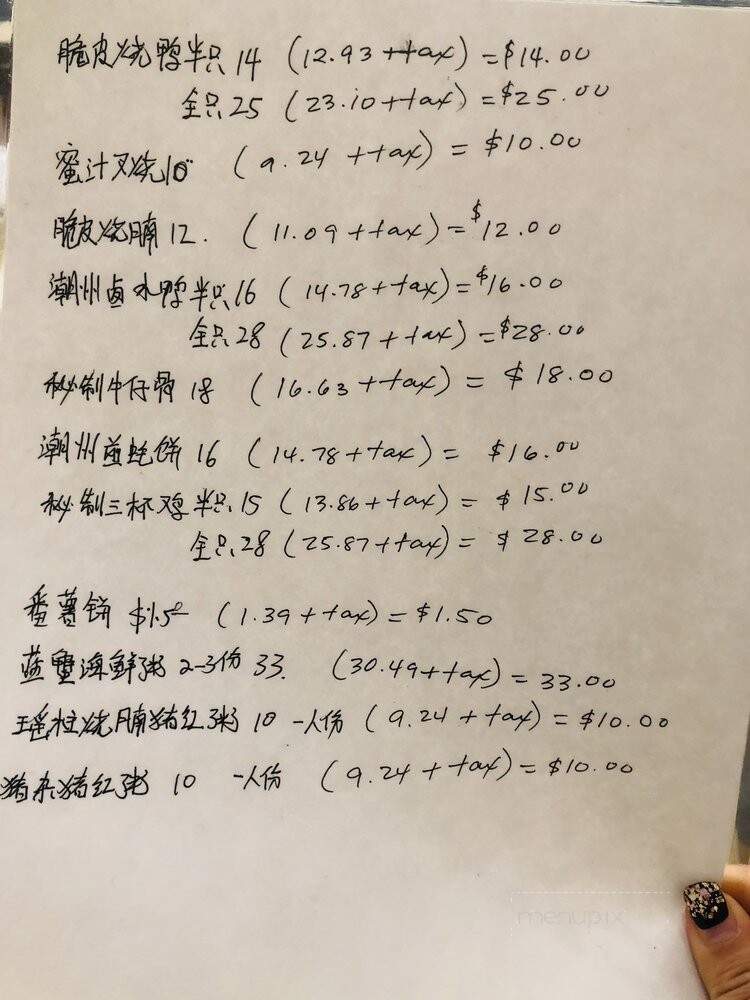 脆皮烧鸭半只 14 (12.93 + tax) = $14.00
全只 25 (23.10 + tax) = $25.00
蜜汁叉烧 10 (9.24 + tax) = $10.00
脆皮烧腩 12. (11.09 + tax) = $12.00
潮州卤水鸭半只 16 (14.78 + tax) = $16.00
全只 28 (25.87 + tax) = $28.00
秘制牛仔骨 18 (16.63 + tax) = $18.00
潮州煎蚝饼 16 (14.78 + tax) = $16.00
秘制三杯鸡半只 15 (13.86 + tax) = $15.00
全只 28 (25.87 + tax) = $28.00
番薯饼 $1.50 (1.39 + tax) = $1.50
蓝蟹海鲜粥 2-3份 33. (30.49 + tax) = 33.00
瑶柱烧腩猪红粥 10 一人份 (9.24 + tax) = $10.00
猪杂猪红粥 10 一人份 (9.24 + tax) = $10.00
menupix